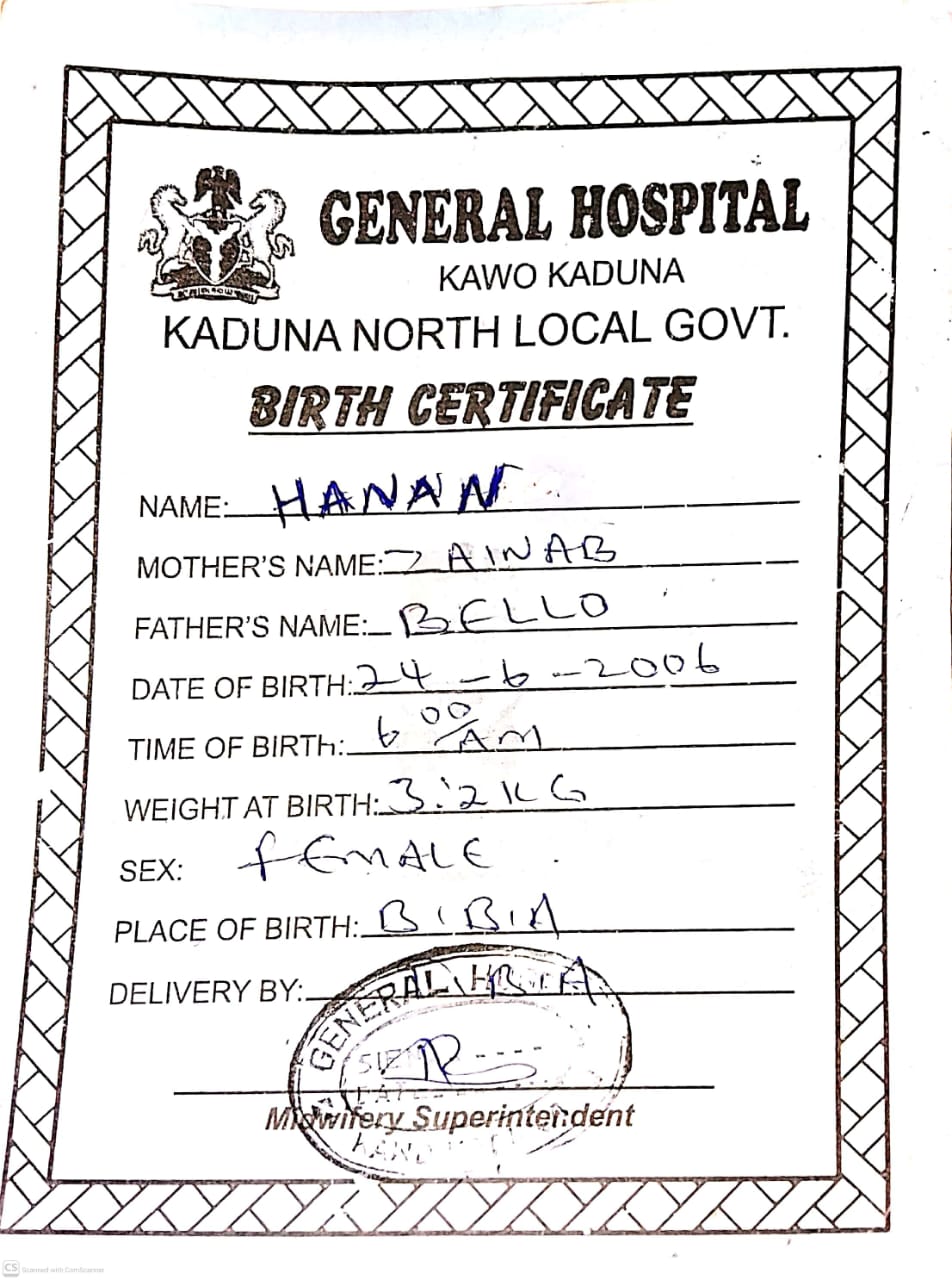 GENERAL HOSPITAL
KAWO KADUNA
KADUNA NORTH LOCAL GOVT.
BIRTH CERTIFICATE
NAME: HANAN
MOTHER'S NAME: ZAINAB
FATHER'S NAME: BELLO
DATE OF BIRTH: 24-6-2006
TIME OF BIRTH: 6 00/AM
WEIGHT AT BIRTH: 3.2KG
SEX: female
PLACE OF BIRTH: BIBIA
DELIVERY BY:
GENERAL
Midwifery Superintendent
CS Scanned with CamScanner